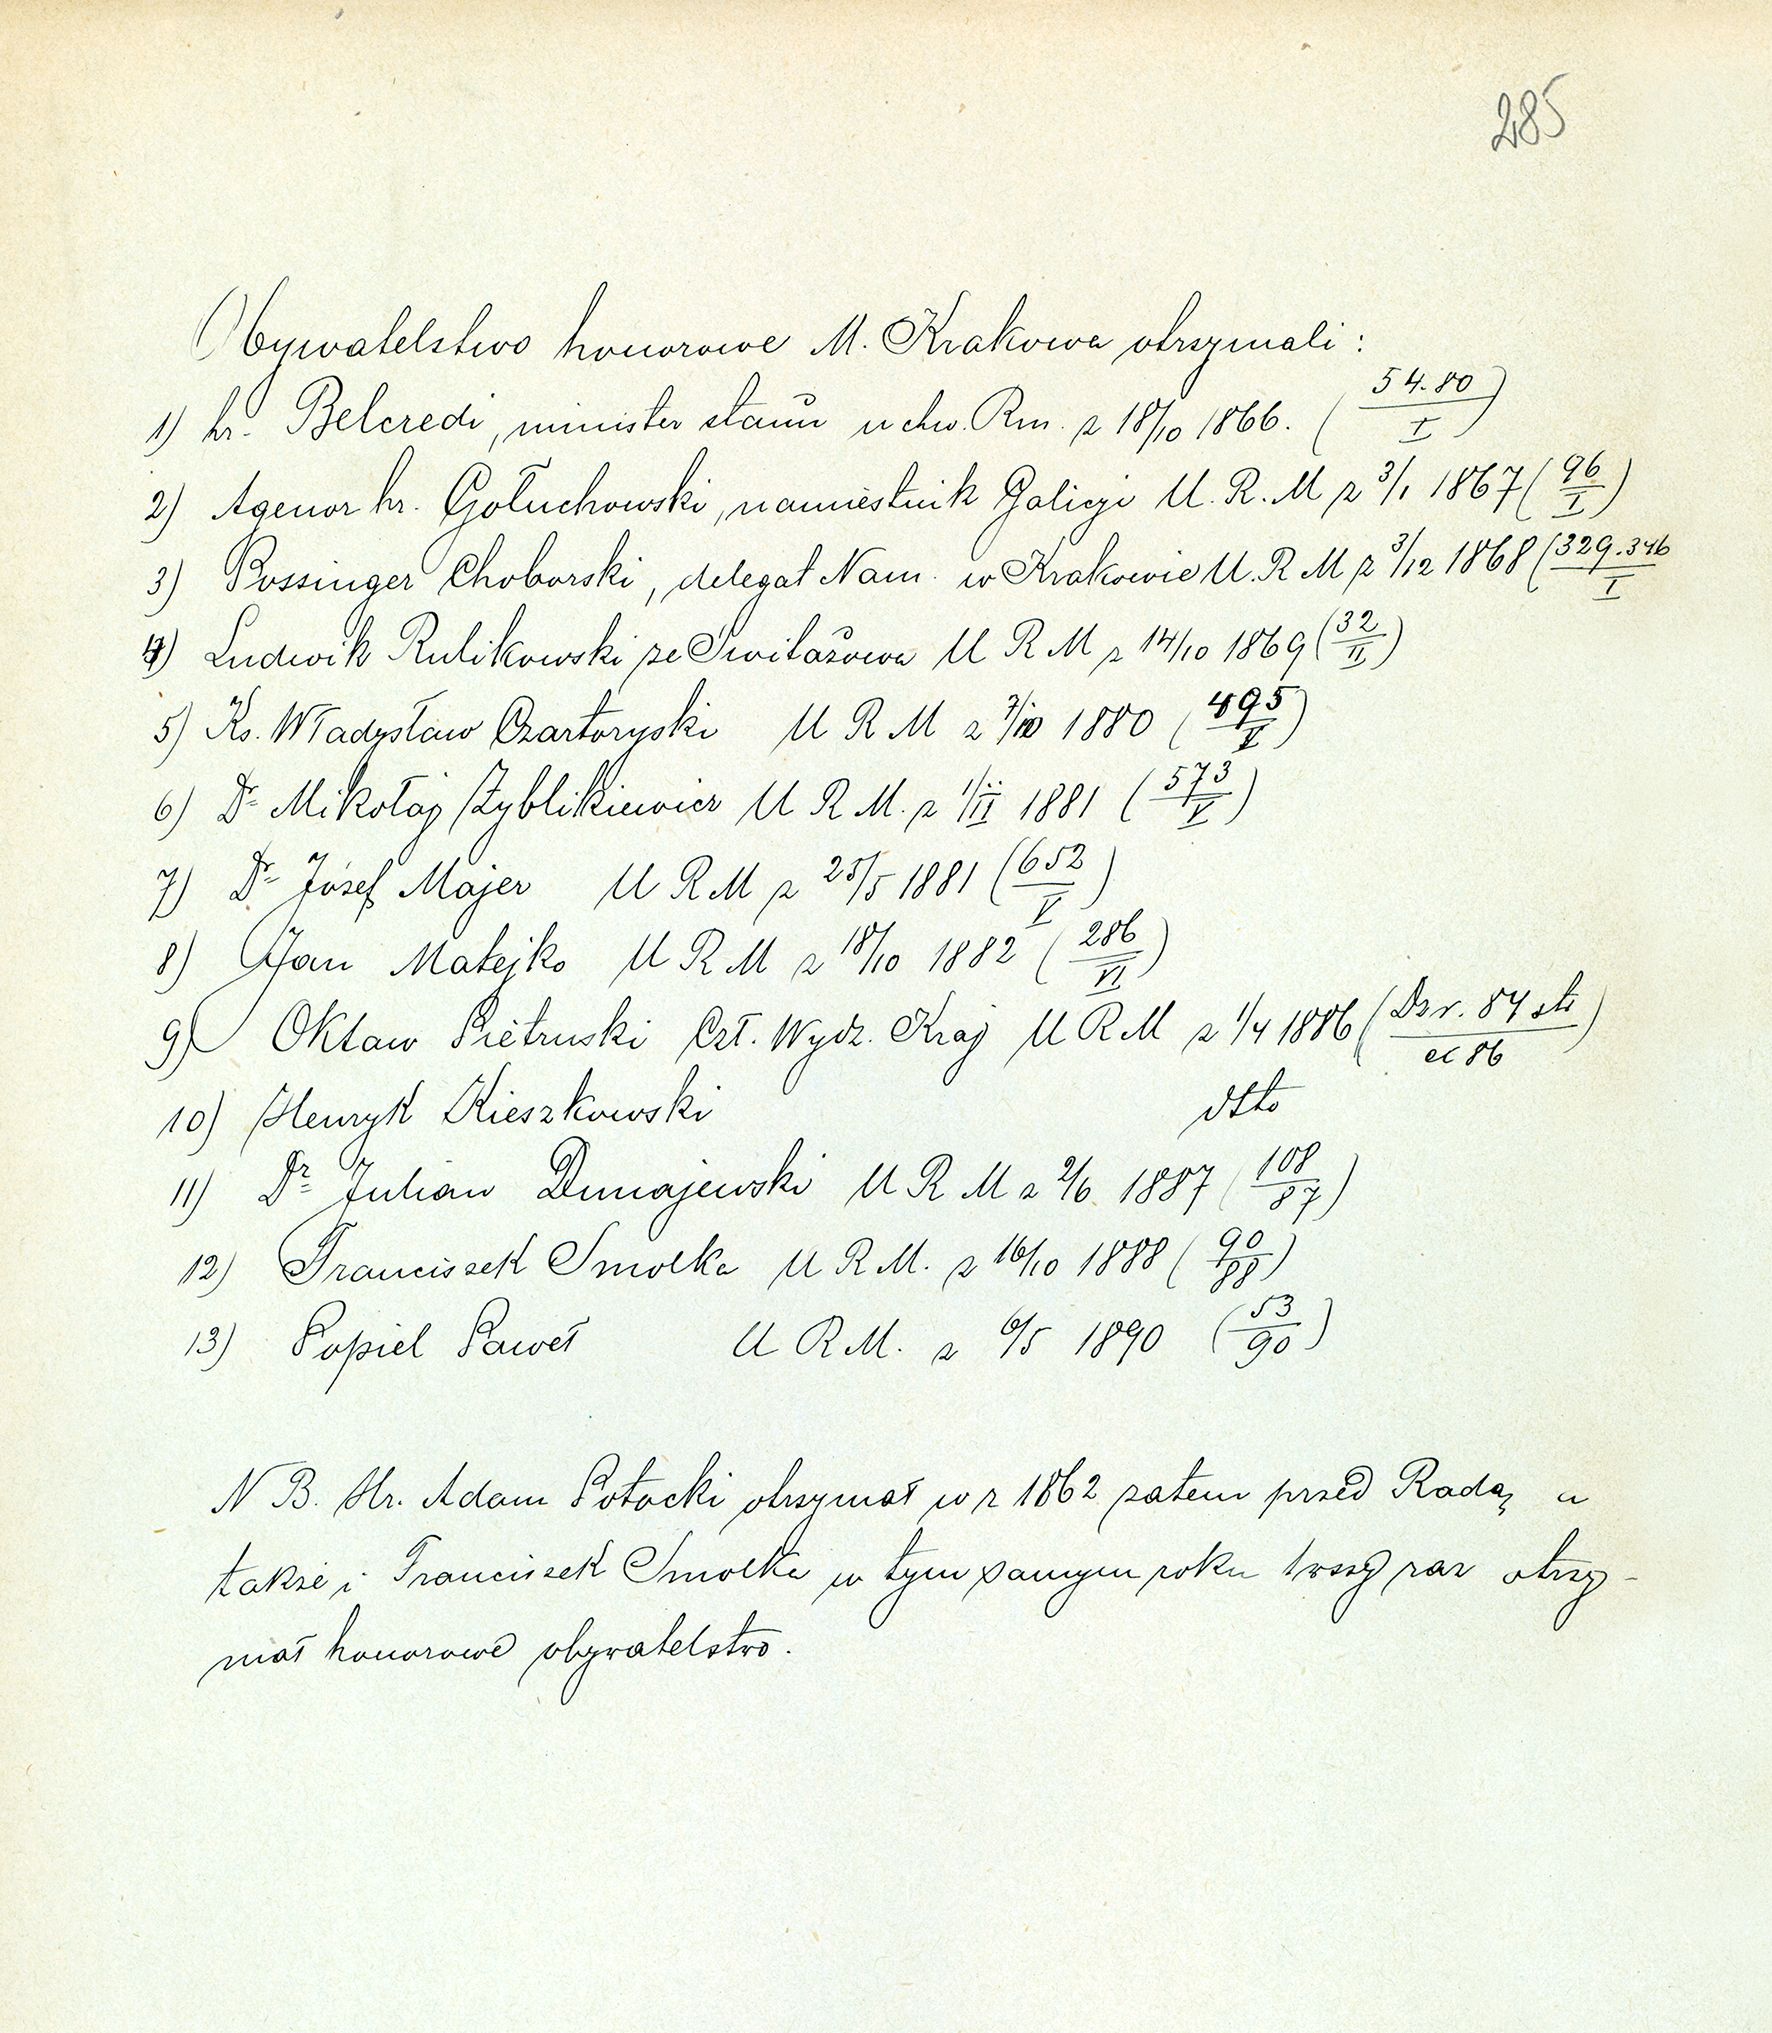 285
Obywatelstwo honorowe M. Krakowa otrzymali:
1) hr. Belcredi, minister stanu uchw. Rm. z 18/10 1866. (54.80/I)
2) Agenor hr. Gołuchowski, namiestnik Galicji U. R. M z 3/1 1867 (96/I)
3) Possinger Choborski, delegat Nam. w Krakowie U. R M z 3/12 1868 (329.346/I)
4) Ludwik Rulikowski ze Switażowa U R M z 14/10 1869 (32/II)
5) Ks. Władysław Czartoryski U R M z 7/10 1880 (495/V)
6) Dr Mikołaj Zyblikiewicz U R M. z 1/II 1881 (573/V)
7) Dr Józef Majer U R M z 25/5 1881 (652/V)
8) Jan Matejko U R M z 18/10 1882 (286/VI)
9) Oktaw Pietruski Czł. Wydz. Kraj U R M z 1/4 1886 (Dzr. 84 str/ex 86)
10) Henryk Kieszkowski dtto
11) Dr Julian Dunajewski U R M z 2/6 1887 (108/87)
12) Franciszek Smolka U R M. z 16/10 1888 (90/88)
13) Popiel Paweł U R M. z 6/5 1890 (53/90)
N B. Hr. Adam Potocki otrzymał w r 1862 zatem przed Radą a
także i Franciszek Smolka w tym samym roku 1wszy raz otrzy-
mał honorowe obywatelstwo.